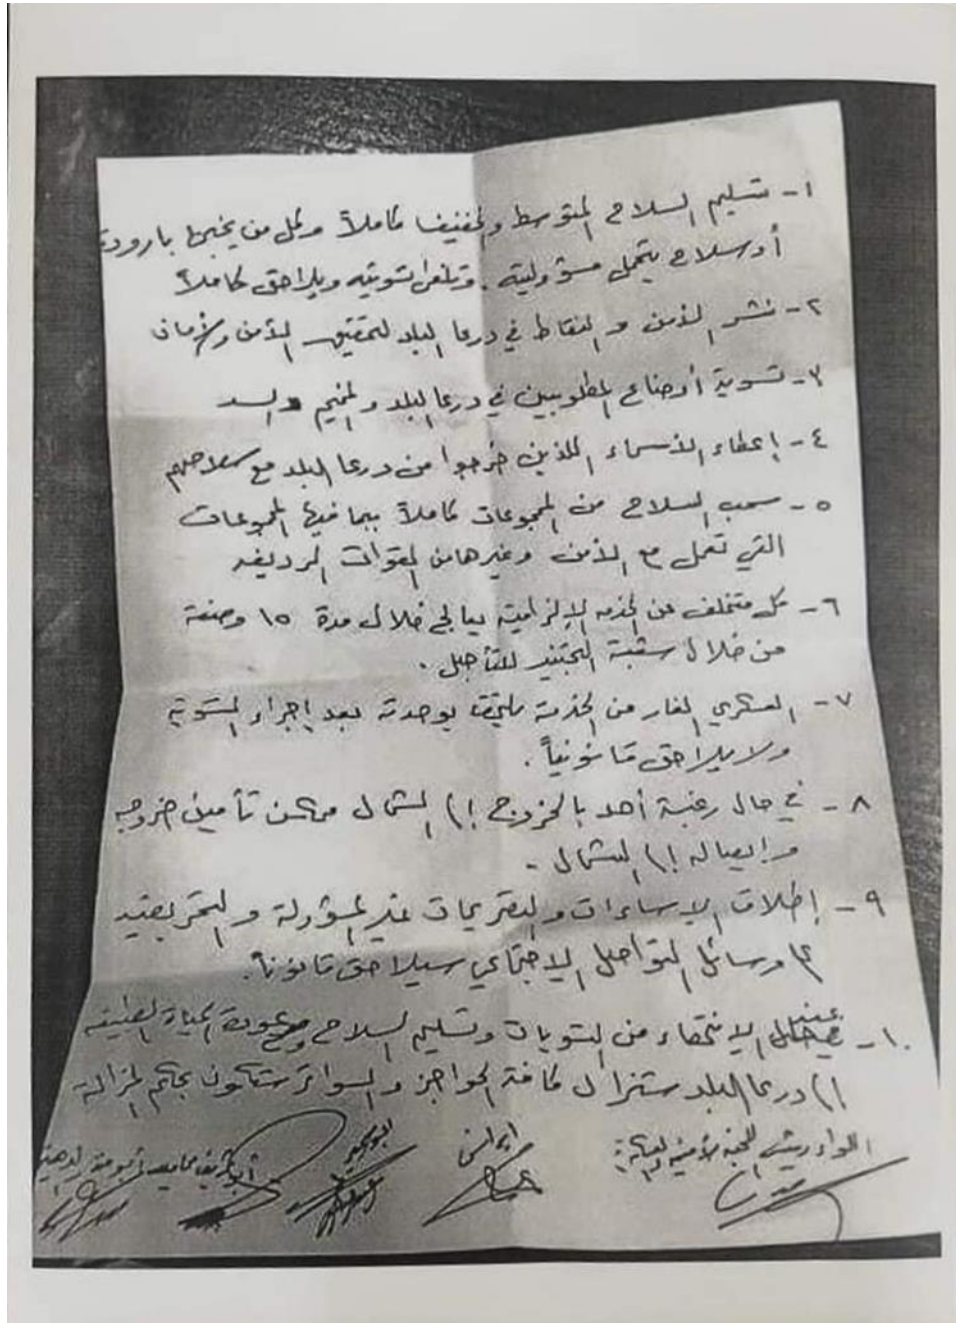 ١- تسليم السلاح المتوسط والخفيف كاملاً وكل من يخبئ بارودة
أو سلاح يتحمل مسؤوليته. وتلغى تسويته ويلاحق كاملاً
٢- نشر الأمن والنقاط في درعا البلد لتحقيق الأمن والأمان
٣- تسوية أوضاع المطلوبين في درعا البلد والمخيم والسد
٤- إعطاء الأسماء اللذين خرجوا من درعا البلد مع سلاحهم
٥- سحب السلاح من المجموعات كاملاً بما فيها المجموعات
التي تعمل مع الأمن وغيرها من القوات الرديفه
٦- كل متخلف عن الخدمه الإلزامية يعالج خلال مدة ١٥ وضعه
من خلال شعبة التجنيد للتأجيل.
٧- العسكري الفار من الخدمة يلتحق بوحدته بعد إجراء التسويه
ولا يلاحق قانونياً.
٨- في حال رغبة أحد بالخروج إلى الشمال ممكن تأمين خروجه
وإيصاله إلى الشمال.
٩- إطلاق الإساءات والتصريحات غير المسؤولة والتحريضيه
على وسائل التواصل الاجتماعي سيلاحق قانوناً.
١٠- عند الإنتهاء من التسويات وتسليم السلاح وعودة الحياة الطبيعيه
إلى درعا البلد ستزال كافة الحواجز والسواتر ستكون بحكم المزالة
اللواء رئيس اللجنة الأمنية والعسكرية